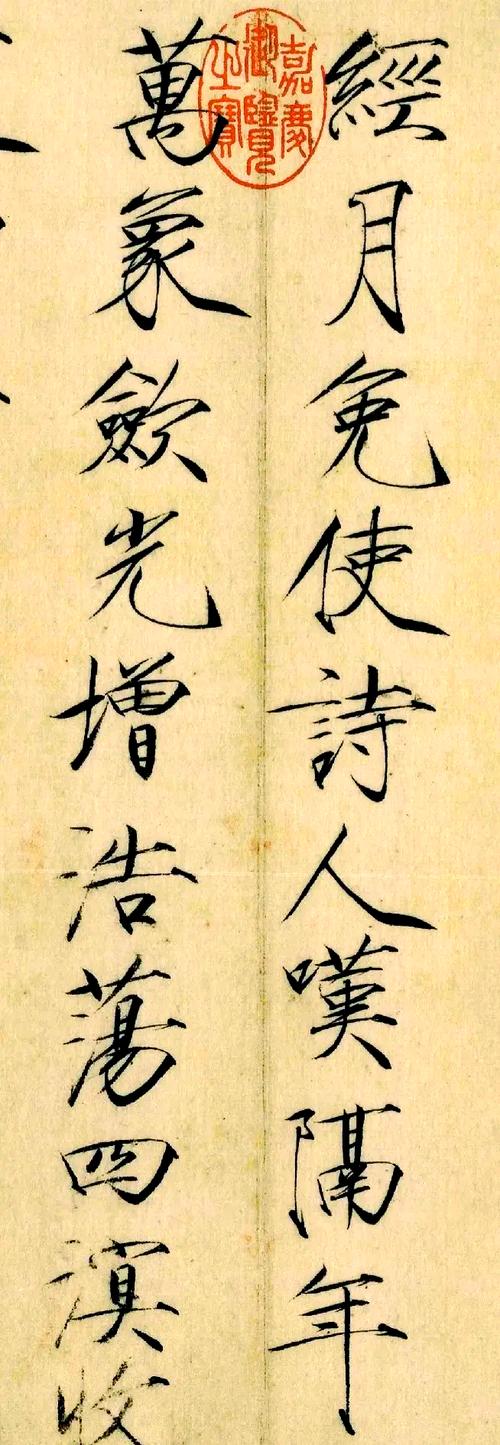 經月免使詩人嘆隔年
萬象歛光增浩蕩四溟收
嘉慶御覽之寶